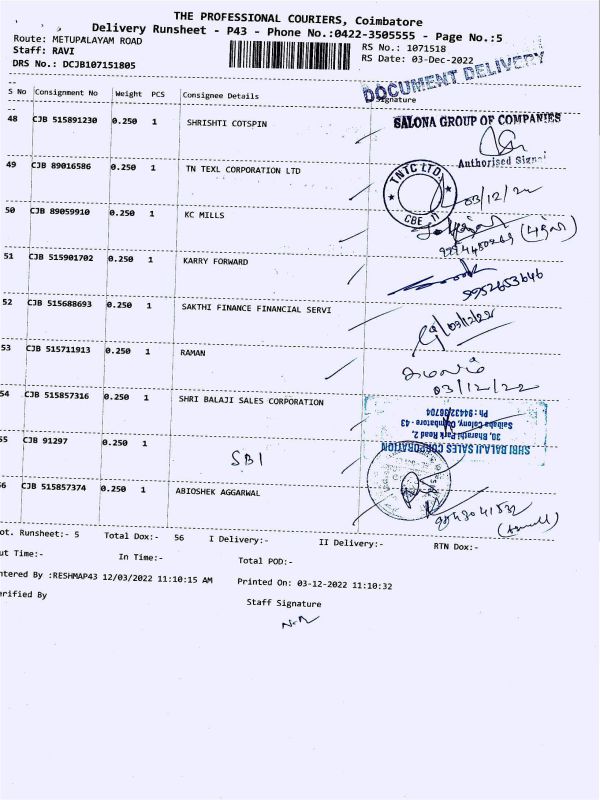 THE PROFESSIONAL COURIERS, Coimbatore
Delivery Runsheet - P43 - Phone No.:0422-3505555 - Page No.:5
Route: METUPALAYAM ROAD
RS No.: 1071518
Staff: RAVI
RS Date: 03-Dec-2022
DRS No.: DCJB107151805
DOCUMENT DELIVERY
S No Consignment No Weight PCS Consignee Details Signature
48 CJB 515891230 0.250 1 SHRISHTI COTSPIN
SALONA GROUP OF COMPANIES
Authorised
49 CJB 89016586 0.250 1 TN TEXL CORPORATION LTD
TNTC LTD.
CBE
03/12/22
50 CJB 89059910 0.250 1 KC MILLS
51 CJB 515901702 0.250 1 KARRY FORWARD
9952653646
52 CJB 515688693 0.250 1 SAKTHI FINANCE FINANCIAL SERVI
03/12/22
53 CJB 515711913 0.250 1 RAMAN
03/12/22
54 CJB 515857316 0.250 1 SHRI BALAJI SALES CORPORATION
SHRI BALAJI SALES CORPORATION
30, Bharathi Park Road 2,
Saibaba Colony, Coimbatore - 43
55 CJB 91297 0.250 1 SBI
56 CJB 515857374 0.250 1 ABIOSHEK AGGARWAL
ot. Runsheet:- 5 Total Dox:- 56 I Delivery:- II Delivery:- RTN Dox:-
ut Time:- In Time:- Total POD:-
ntered By :RESHMAP43 12/03/2022 11:10:15 AM Printed On: 03-12-2022 11:10:32
erified By Staff Signature